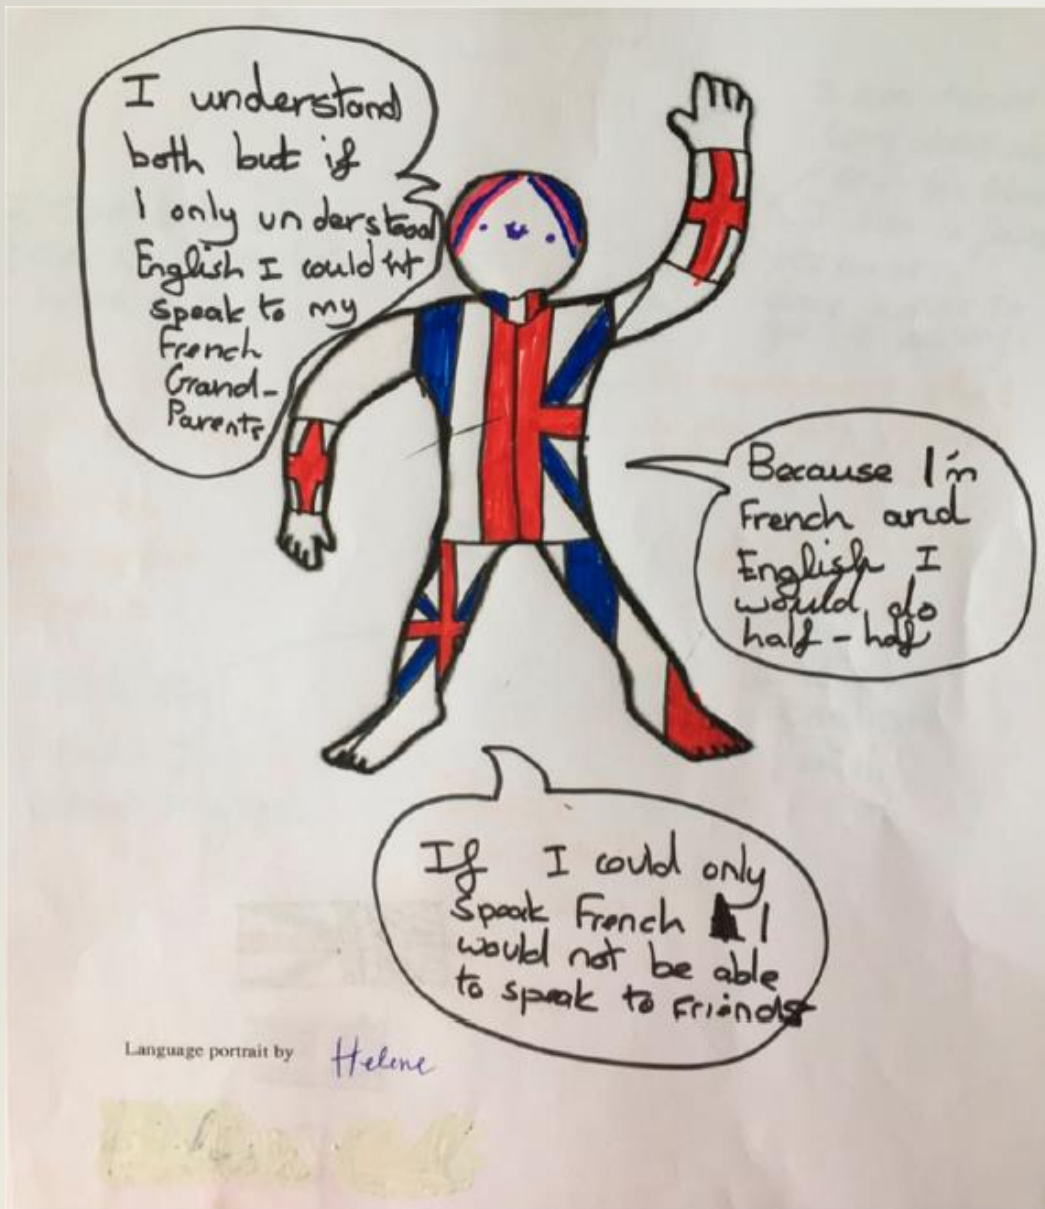 I understand
both but if
I only understood
English I could'nt
speak to my
French
Grand-
Parents
Because I'm
French and
English I
would do
half-half
If I could only
Speak French I
would not be able
to speak to Friends
Language portrait by Helene